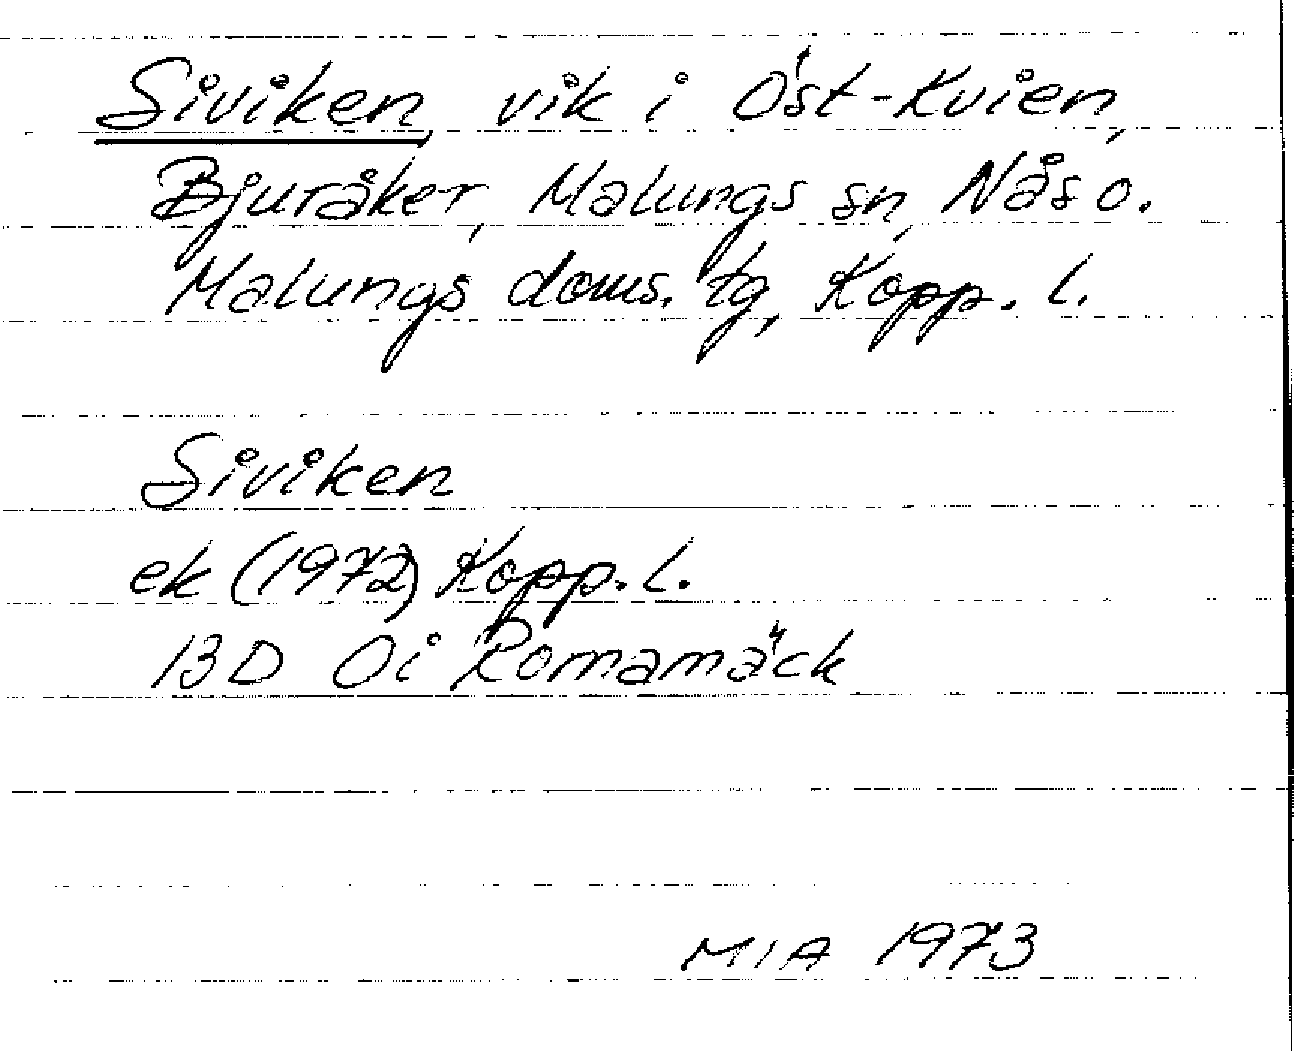 Siviken, vik i Öst-Kvien,
Bjuråker, Malungs sn, Nås o.
Malungs doms. tg, Kopp. l.
Siviken
ek (1972) Kopp. l.
13D 0i Romamäck
MIA 1973